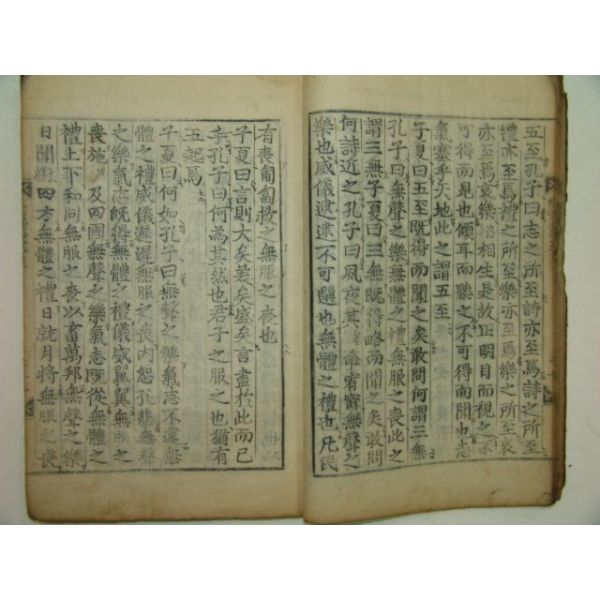 五至孔子曰志之所至詩亦至焉詩之所至
禮亦至焉禮之所至樂亦至焉樂之所至哀
亦至焉哀樂相生是故正明目而視之不
可得而見也傾耳而聽之不可得而聞也志
氣塞乎天地此之謂五至
子夏曰五至旣得而聞之矣敢問何謂三無
孔子曰無聲之樂無體之禮無服之喪此之
謂三無子夏曰三無旣得略而聞之矣敢問
何詩近之孔子曰夙夜其命宥密無聲之
樂也威儀逮逮不可選也無體之禮也凡民
有喪匍匐救之無服之喪也
子夏曰言則大矣美矣盛矣言盡於此而已
乎孔子曰何為其然也君子之服之也猶有
五起焉
子夏曰何如孔子曰無聲之樂氣志不違無
體之禮威儀遲遲無服之喪內恕孔悲無聲
之樂氣志旣得無體之禮儀威翼翼無服之
喪施及四國無聲之樂氣志旣從無體之
禮上下和同無服之喪以畜萬邦無聲之樂
日聞四方無體之禮日就月將無服之喪